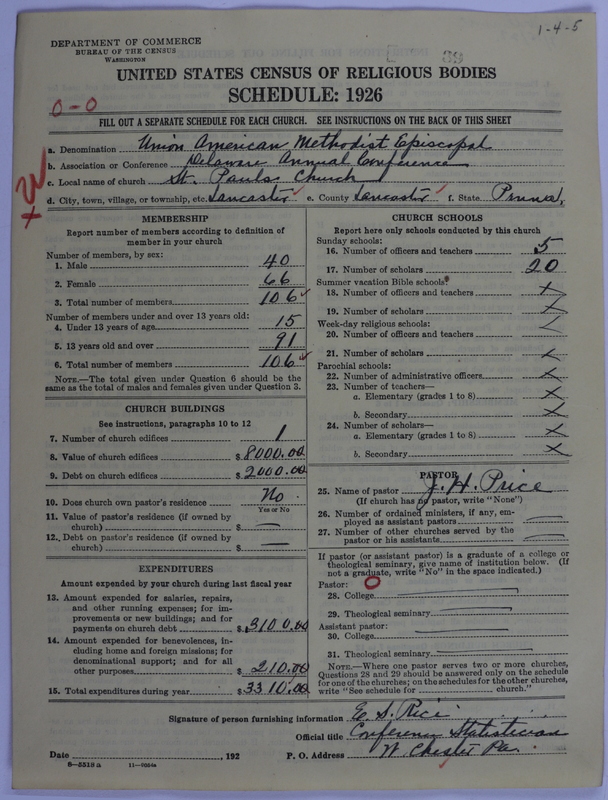 1-4-5
DEPARTMENT OF COMMERCE
BUREAU OF THE CENSUS
WASHINGTON
39
UNITED STATES CENSUS OF RELIGIOUS BODIES
SCHEDULE: 1926
0-0
FILL OUT A SEPARATE SCHEDULE FOR EACH CHURCH. SEE INSTRUCTIONS ON THE BACK OF THIS SHEET
a. Denomination Union American Methodist Episcopal
b. Association or Conference Delaware Annual Conference
c. Local name of church St. Pauls Church
d. City, town, village, or township, etc. Lancaster e. County Lancaster f. State Penna.
MEMBERSHIP
Report number of members according to definition of
member in your church
Number of members, by sex:
1. Male 40
2. Female 66
3. Total number of members 106
Number of members under and over 13 years old:
4. Under 13 years of age 15
5. 13 years old and over 91
6. Total number of members 106
NOTE.—The total given under Question 6 should be
the same as the total of males and females given under Question 3.
CHURCH BUILDINGS
See instructions, paragraphs 10 to 12
7. Number of church edifices 1
8. Value of church edifices $ 8000.00
9. Debt on church edifices $ 2000.00
10. Does church own pastor's residence No
Yes or No
11. Value of pastor's residence (if owned by
church) $ —
12. Debt on pastor's residence (if owned by
church) $ —
EXPENDITURES
Amount expended by your church during last fiscal year
13. Amount expended for salaries, repairs,
and other running expenses; for im-
provements or new buildings; and for
payments on church debt $ 3100.00
14. Amount expended for benevolences, in-
cluding home and foreign missions; for
denominational support; and for all
other purposes $ 210.00
15. Total expenditures during year $ 3310.00
CHURCH SCHOOLS
Report here only schools conducted by this church
Sunday schools:
16. Number of officers and teachers 5
17. Number of scholars 20
Summer vacation Bible schools:
18. Number of officers and teachers X
19. Number of scholars X
Week-day religious schools:
20. Number of officers and teachers
21. Number of scholars X
Parochial schools:
22. Number of administrative officers X
23. Number of teachers—
a. Elementary (grades 1 to 8) X
b. Secondary X
24. Number of scholars—
a. Elementary (grades 1 to 8) X
b. Secondary X
PASTOR
25. Name of pastor J. H. Price
(If church has no pastor, write "None")
26. Number of ordained ministers, if any, em-
ployed as assistant pastors —
27. Number of other churches served by the
pastor or his assistants —
If pastor (or assistant pastor) is a graduate of a college or
theological seminary, give name of institution below. (If
not a graduate, write "No" in the space indicated.)
Pastor: O
28. College —
29. Theological seminary —
Assistant pastor:
30. College —
31. Theological seminary —
NOTE.—Where one pastor serves two or more churches,
Questions 28 and 29 should be answered only on the schedule
for one of the churches; on the schedules for the other churches,
write "See schedule for church."
Signature of person furnishing information E. S. Rice
Official title Conference Statistician
Date , 192 P. O. Address W. Chester Pa.
8—5518 a 11—9554a